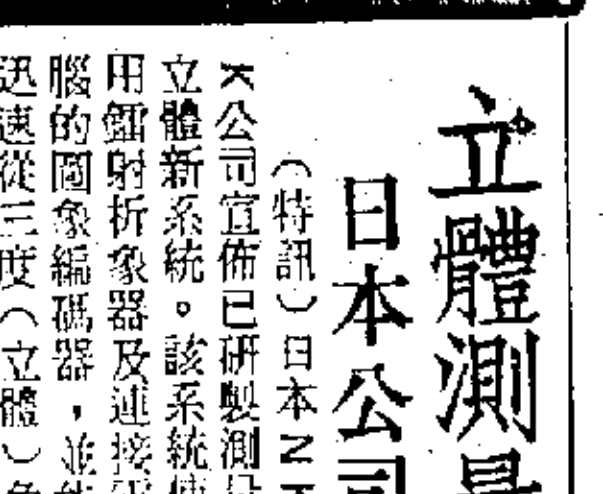 立體測量
日本公司
（特訊）日本N
K公司宣佈已研製測量
立體新系統。該系統使
用鐳射折象器及連接電
腦的圖象編碼器，並能
迅速從三度（立體）